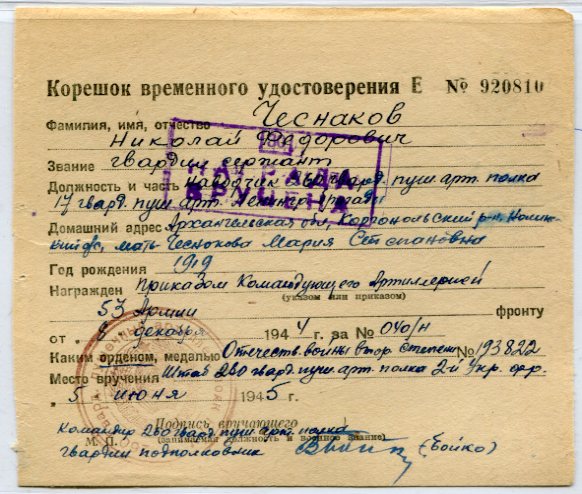 Корешок временного удостоверения Е № 920810
Фамилия, имя, отчество Чеснаков
Николай Федорович
Звание гвардии сержант
НАГРАДА
ВРУЧЕНА
Должность и часть наводчик гвард. пуш. арт. полка
17 гвард. пуш. арт.
Домашний адрес Архангельская обл,
мать Чеснокова Мария Степановна
Год рождения 1919
Награжден Приказом Командующего Артиллерией
(указом или приказом)
53 Армии фронту
от " декабря 1944 г. за № 040/н
Каким орденом, медалью Отечеств. войны втор. степени № 193822
Место вручения Штаб 260 гвард. пуш. арт. полка 2-й Укр. фр.
" 5 июня 1945 г.
Подпись вручающего
Командир 260 гвард пуш. арт. полка
М. П. (занимаемая должность и военное звание)
гвардии подполковник (Бойко)